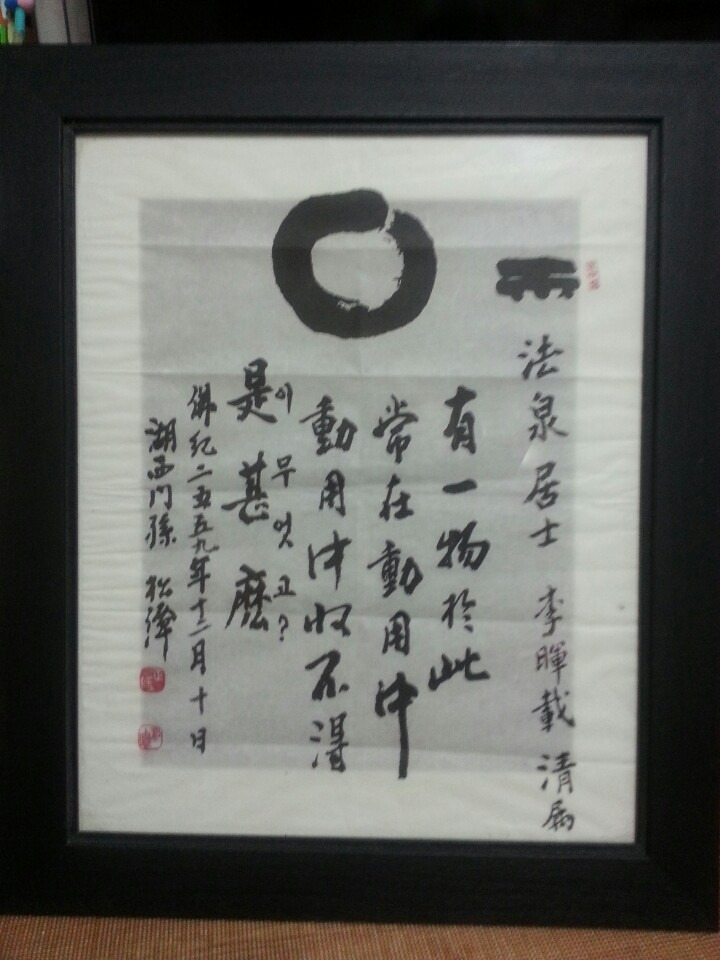 法泉 居士 李暉載 清属
有一物於此
常在動用中
動用中收不得
是甚麽
이 무엇고?
佛紀二五五九年十二月十日
湖西門孫 松